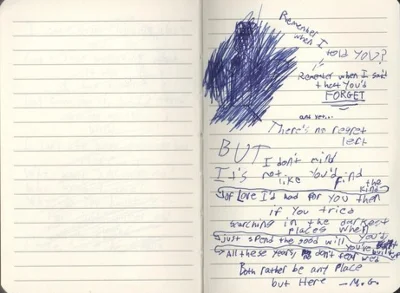 Remember
when I
told YOU?
Remember when I said
that You'd
FORGET
and yet...
There's no regret
left
BUT I don't mind
It's not like You'd find
the kind
of Love I'd had for you then
if You tried
searching in the darkest
places when
just spend the good will you'd
you've built
All these years, don't feel well
Both rather be any place
but Here - M.G.